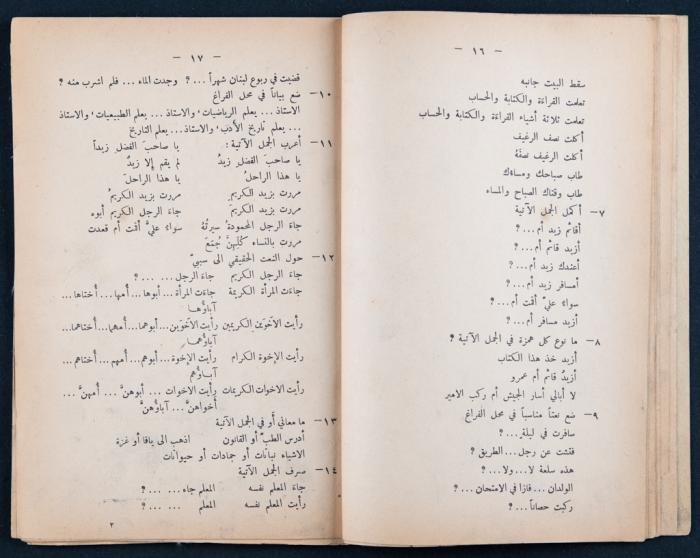 — ١٦ —
سقط البيت جانبه
تعلمت القراءة والكتابة والحساب
تعلمت ثلاثة أشياء القراءة والكتابة والحساب
أكلت نصف الرغيف
أكلت الرغيف نصفَهُ
طاب صباحك ومساءك
طاب وقتاك الصباح والمساء
٧ — أكمل الجمل الآتية
أقائم زيد أم ... ؟
أزيد قائم أم ... ؟
أعندك زيد أم ... ؟
أمسافر زيد أم ... ؟
سواء عليّ أقمت أم ...
أزيد مسافر أم ... ؟
٨ — ما نوع كل همزة في الجمل الآتية ؟
أزيد خذ هذا الكتاب
أزيدٌ قائم أم عمرو
لا أبالي أسار الجيش أم ركب الامير
٩ — ضع نعتاً مناسباً في محل الفراغ
سافرت في ليلةٍ ... ؟
فتشت عن رجل ... الطريق ؟
هذه سلعة لا ... ولا ... ؟
الولدان ... فازا في الامتحان ... ؟
ركبت حصاناً ... ؟
— ١٧ —
قضيت في ربوع لبنان شهراً ... ؟ وجدت الماء ... فلم اشرب منه ؟
١٠ — ضع بياناً في محل الفراغ
الاستاذ ... يعلم الرياضيات، والاستاذ ... يعلم الطبيعيات، والاستاذ
... يعلم تاريخ الأدب، والاستاذ ... يعلم التاريخ
١١ — أعرب الجمل الآتية : يا صاحبَ الفضلِ زيداً
يا صاحبَ الفضلِ زيدُ لم يقم إلا زيدٌ
يا هذا الراحلُ يا هذا الراحلَ
مررت بزيد الكريمِ مررت بزيد الكريمُ
مررت بزيد الكريمَ جاءَ الرجل الكريم أبوه
جاءَ الرجل المحمودةُ سيرتُهُ سواءٌ عليَّ أقمت أم قعدت
مررت بالنساء كُلِّهِنَّ جُمَعَ
١٢ — حول النعت الحقيقي الى سببيّ
جاءَ الرجل الكريم جاءَ الرجل ... ... ؟
جاءت المرأة الكريمة جاءت المرأة ... أبوها ... أمها ... أُختاها ...
آباؤها
رأيت الآخوَين الكريمين رأيت الآخوَين ... أبوهما ... أُمهما ... أُختاهما ...
آباؤهما
رأيت الإخوة الكرام رأيت الإخوة ... أبوهم ... أُمهم ... أُختاهم ...
آباؤهم
رأيت الاخوات الكريمات رأيت الاخوات ... أبوهنَّ ... أُمهنَّ ...
أخواهنَّ ... آباؤهنَّ
١٣ — ما معاني أَو في الجمل الآتية
أدرس الطبّ أو القانون اذهب الى يافا أو غزة
الاشياء نباتات أو جمادات أو حيوانات
١٤ — صرف الجمل الآتية
جاءَ المعلم نفسه المعلم جاء ... ... ؟
رأيت المعلم نفسه المعلم ... ... ؟
٢